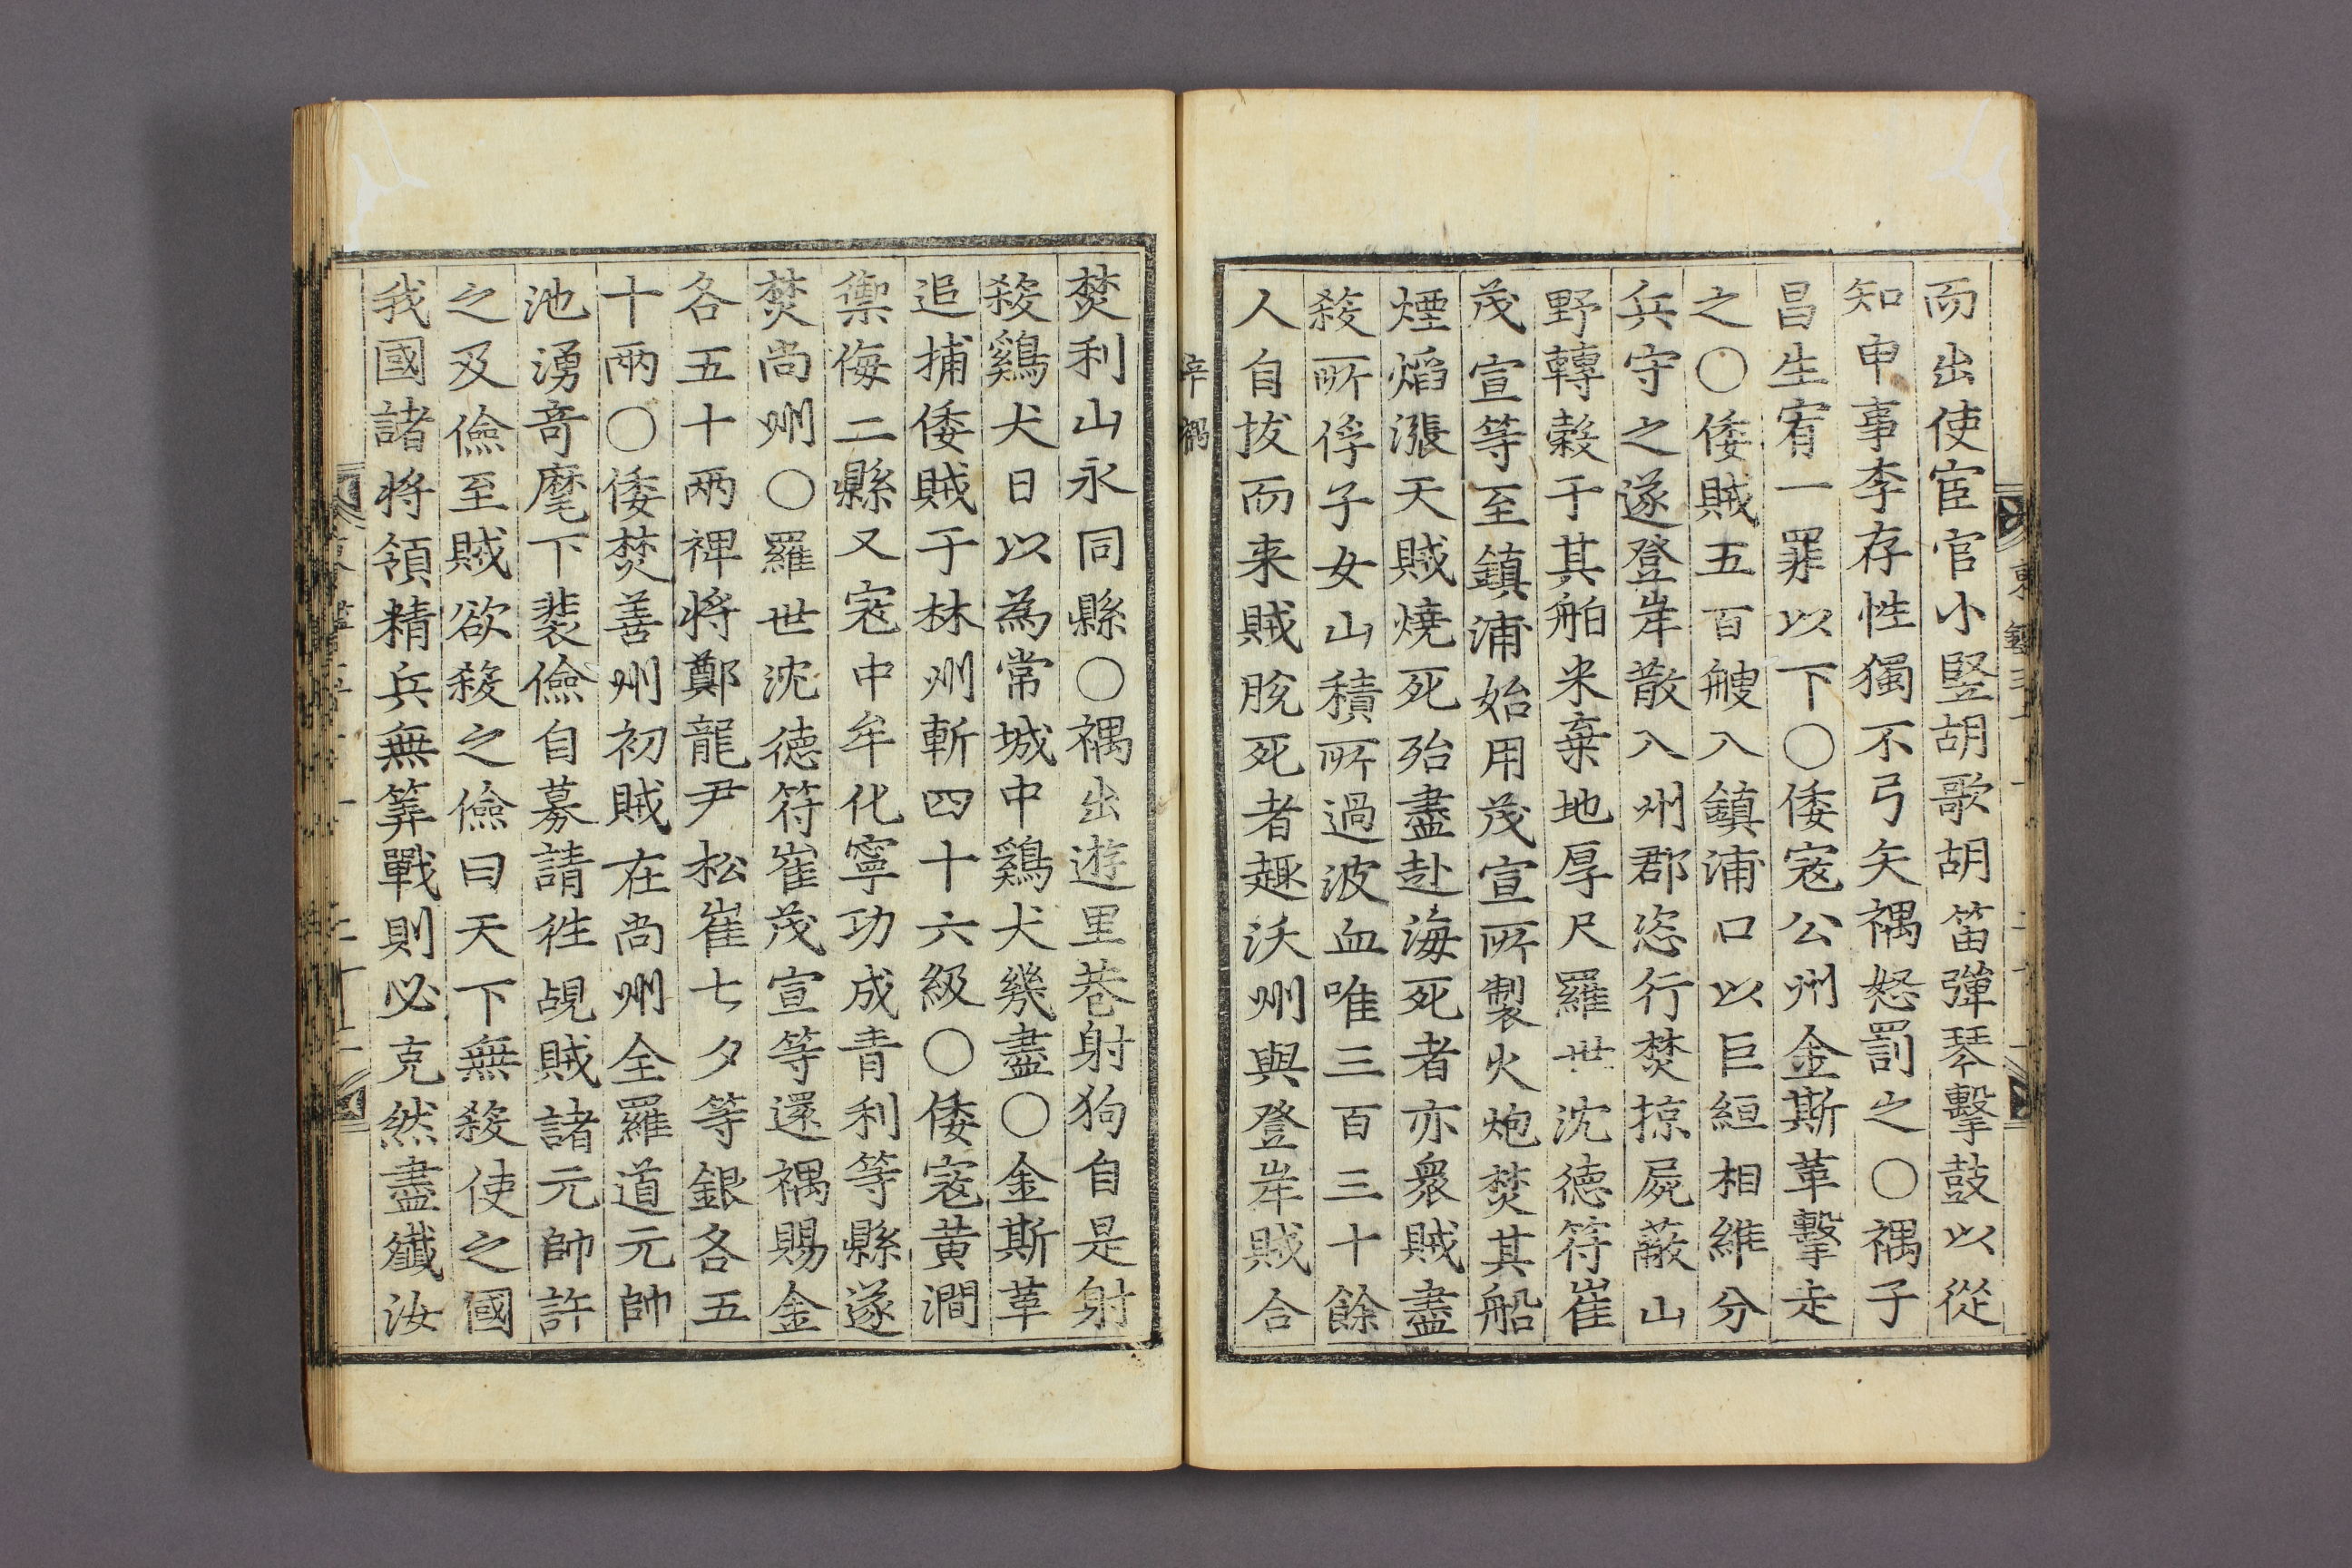 而出使宦官小竪胡歌胡笛彈琴擊鼓以從
知申事李存性獨不弓矢禑怒罰之〇禑子
昌生宥一罪以下〇倭寇公州金斯革擊走
之〇倭賊五百艘入鎮浦口以巨絙相維分
兵守之遂登岸散入州郡恣行焚掠屍蔽山
野轉穀于其舶米棄地厚尺羅世沈德符崔
茂宣等至鎮浦始用茂宣所製火炮焚其船
煙焰漲天賊燒死殆盡赴海死者亦衆賊盡
殺所俘子女山積所過波血唯三百三十餘
人自拔而来賊脫死者趣沃州與登岸賊合
辛禑
焚利山永同縣〇禑出遊里巷射狗自是射
殺鷄犬日以為常城中鷄犬幾盡〇金斯革
追捕倭賊于林州斬四十六級〇倭寇黄澗
禦侮二縣又寇中牟化寧功成青利等縣遂
焚尚州〇羅世沈德符崔茂宣等還禑賜金
各五十兩裨將鄭龍尹松崔七夕等銀各五
十兩〇倭焚善州初賊在尚州全羅道元帥
池湧奇麾下裴儉自募請徃覘賊諸元帥許
之及儉至賊欲殺之儉曰天下無殺使之國
我國諸将領精兵無筭戰則必克然盡殲汝